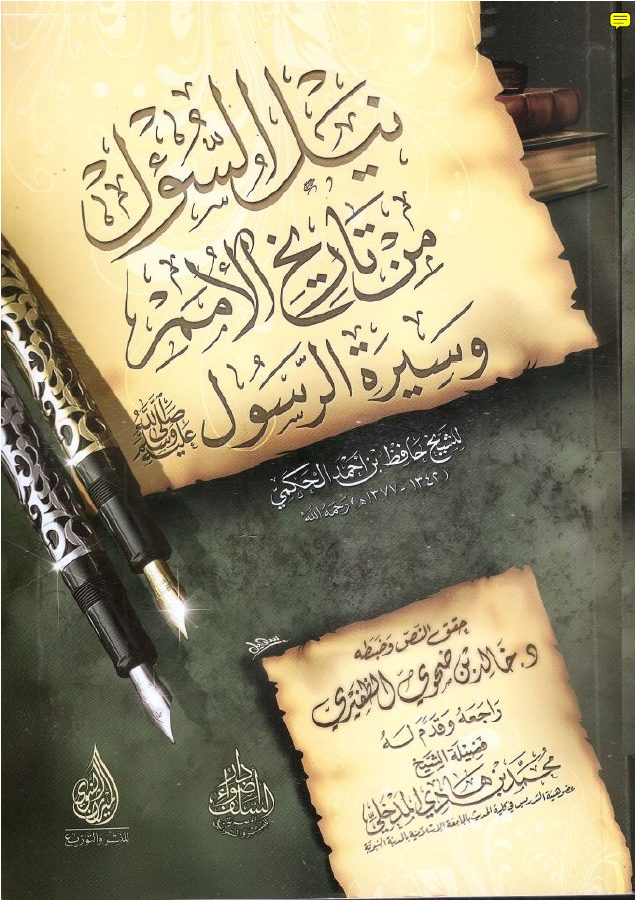 نَيْلُ السُّؤْل
مِنْ تَارِيخِ الأُمَمِ
وَسِيرَةِ الرَّسُول صلى الله عليه وسلم
للشيخ حافظ بن أحمد الحكمي
(١٣٤٢ - ١٣٧٧ هـ) رحمه الله
حقق النص وضبطه
د. خالد بن ضحوي الظفيري
راجعه وقدم له
فضيلة الشيخ
محمد بن هادي المدخلي
عضو هيئة التدريس في كلية الحديث بالجامعة الإسلامية بالمدينة النبوية
دار أضواء السلف
الميراث النبوي
للنشر والتوزيع